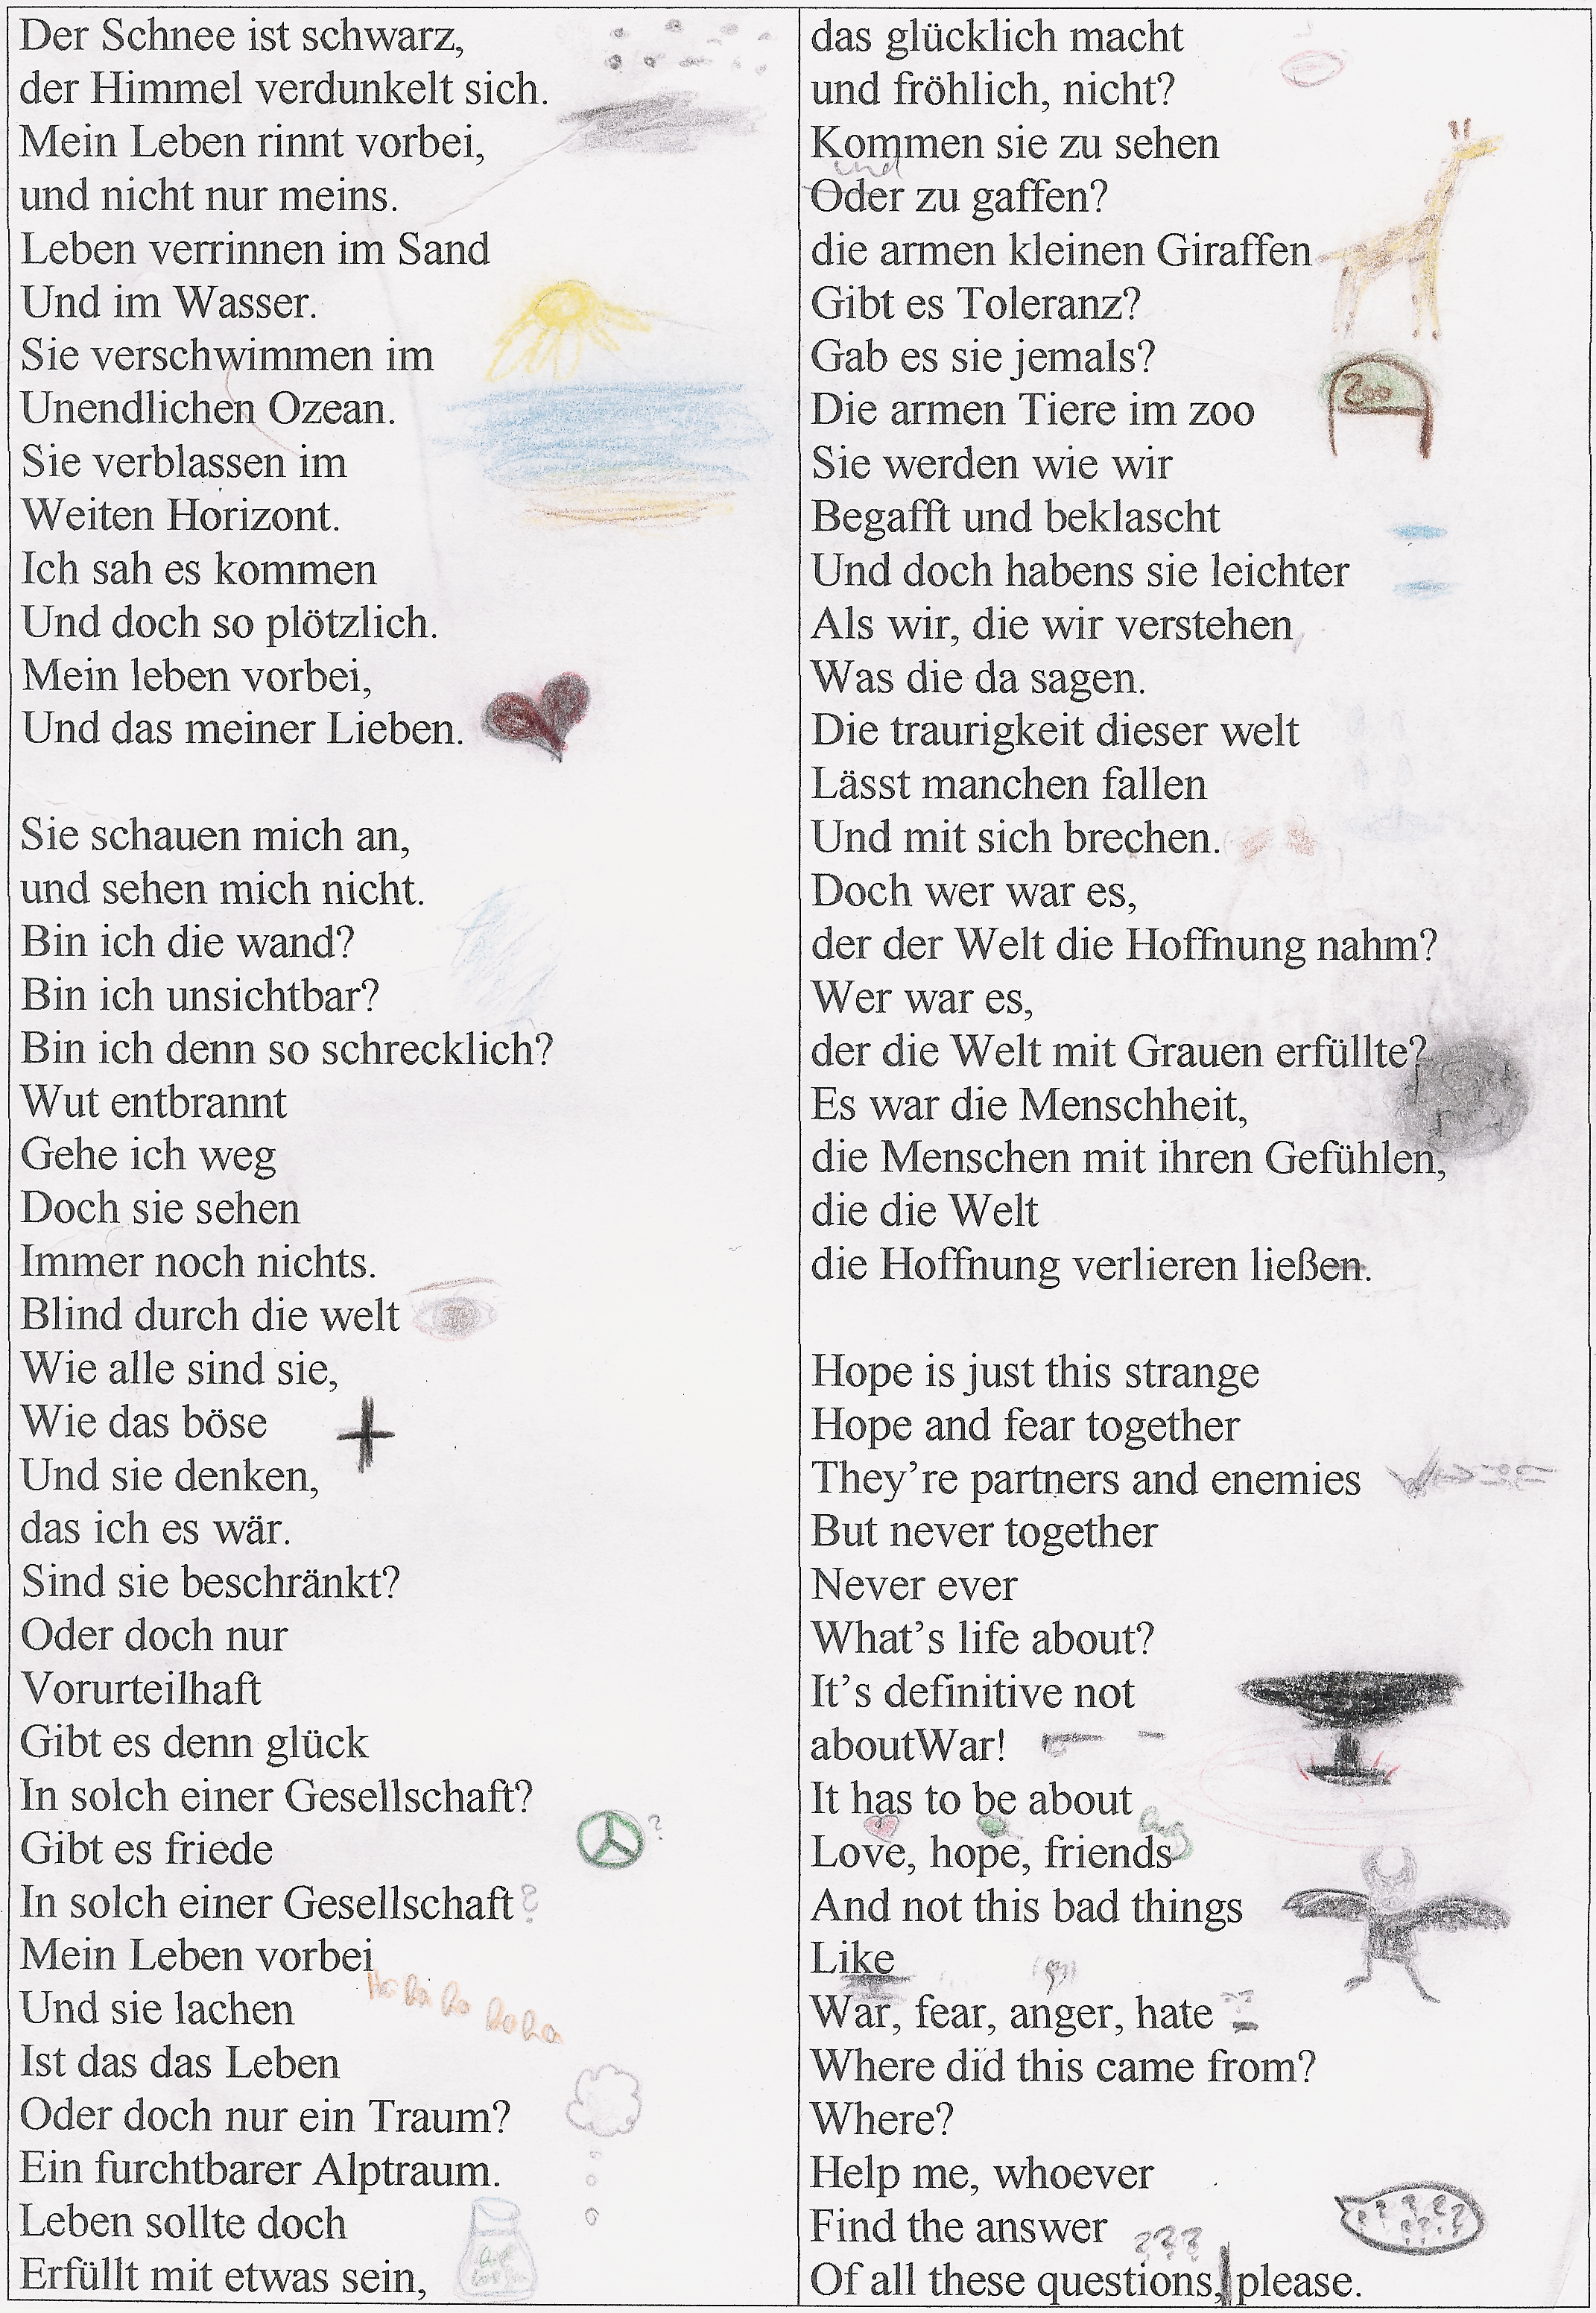 Der Schnee ist schwarz,
der Himmel verdunkelt sich.
Mein Leben rinnt vorbei,
und nicht nur meins.
Leben verrinnen im Sand
Und im Wasser.
Sie verschwimmen im
Unendlichen Ozean.
Sie verblassen im
Weiten Horizont.
Ich sah es kommen
Und doch so plötzlich.
Mein leben vorbei,
Und das meiner Lieben.

Sie schauen mich an,
und sehen mich nicht.
Bin ich die wand?
Bin ich unsichtbar?
Bin ich denn so schrecklich?
Wut entbrannt
Gehe ich weg
Doch sie sehen
Immer noch nichts.
Blind durch die welt
Wie alle sind sie,
Wie das böse
Und sie denken,
das ich es wär.
Sind sie beschränkt?
Oder doch nur
Vorurteilhaft
Gibt es denn glück
In solch einer Gesellschaft?
Gibt es friede
?
In solch einer Gesellschaft?
Mein Leben vorbei
Ha ha ha ha ha
Und sie lachen
Ist das das Leben
Oder doch nur ein Traum?
Ein furchtbarer Alptraum.
Leben sollte doch
Erfüllt mit etwas sein,
das glücklich macht
und fröhlich, nicht?
Kommen sie zu sehen
und
Oder zu gaffen?
die armen kleinen Giraffen
Gibt es Toleranz?
Gab es sie jemals?
Zoo
Die armen Tiere im zoo
Sie werden wie wir
Begafft und beklascht
Und doch habens sie leichter
Als wir, die wir verstehen
Was die da sagen.
Die traurigkeit dieser welt
Lässt manchen fallen
Und mit sich brechen.
Doch wer war es,
der der Welt die Hoffnung nahm?
Wer war es,
der die Welt mit Grauen erfüllte?
Es war die Menschheit,
die Menschen mit ihren Gefühlen,
die die Welt
die Hoffnung verlieren ließen.

Hope is just this strange
Hope and fear together
They’re partners and enemies
But never together
Never ever
What’s life about?
It’s definitive not
aboutWar!
It has to be about
Love, hope, friends
And not this bad things
Like
War, fear, anger, hate
Where did this came from?
Where?
Help me, whoever
Find the answer
? ? ?
Of all these questions, please.